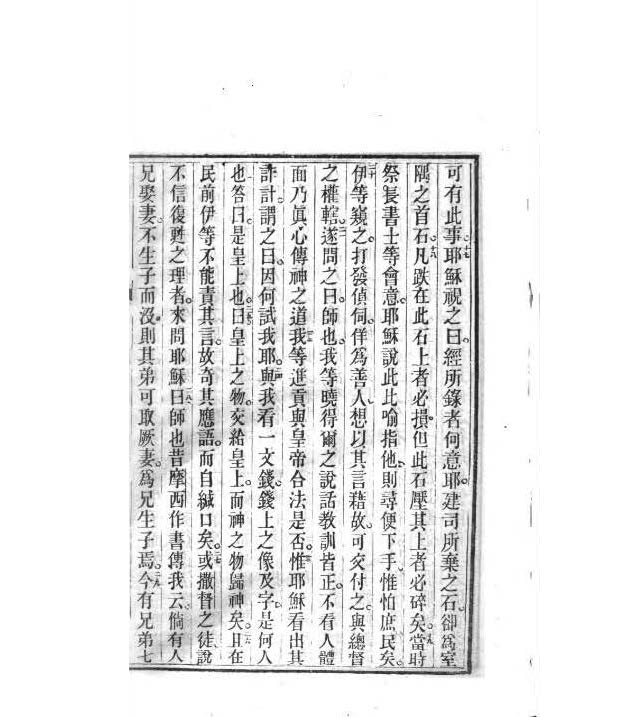 可有此事。耶穌視之曰。經所錄者何意耶。建司所棄之石。卻為室
隅之首石。凡跌在此石上者必損。但此石壓其上者必碎矣。當時
祭長書士等會意。耶穌說此比喻指他。則尋便下手。惟怕庶民矣。
伊等窺之。打發偵伺。佯為善人。想以其言藉故。可交付之。與總督
之權轄。遂問之曰。師也。我等曉得爾之說話教訓皆正。不看人體
面。乃眞心傳神之道。我等進貢與皇帝合法是否。惟耶穌看出其
詐計。謂之曰。因何試我耶。與我看一文錢。錢上之像及字。是何人
也。答曰。是皇上也。曰。皇上之物。交給皇上。而神之物歸神矣。且在
民前伊等不能責其言。故奇其應語。而自緘口矣。或撒督之徒說
不信復甦之理者。來問耶穌曰。師也。昔摩西作書傳我云。倘有人
兄娶妻。不生子而沒。則其弟可取厥妻。為兄生子焉。今有兄弟七